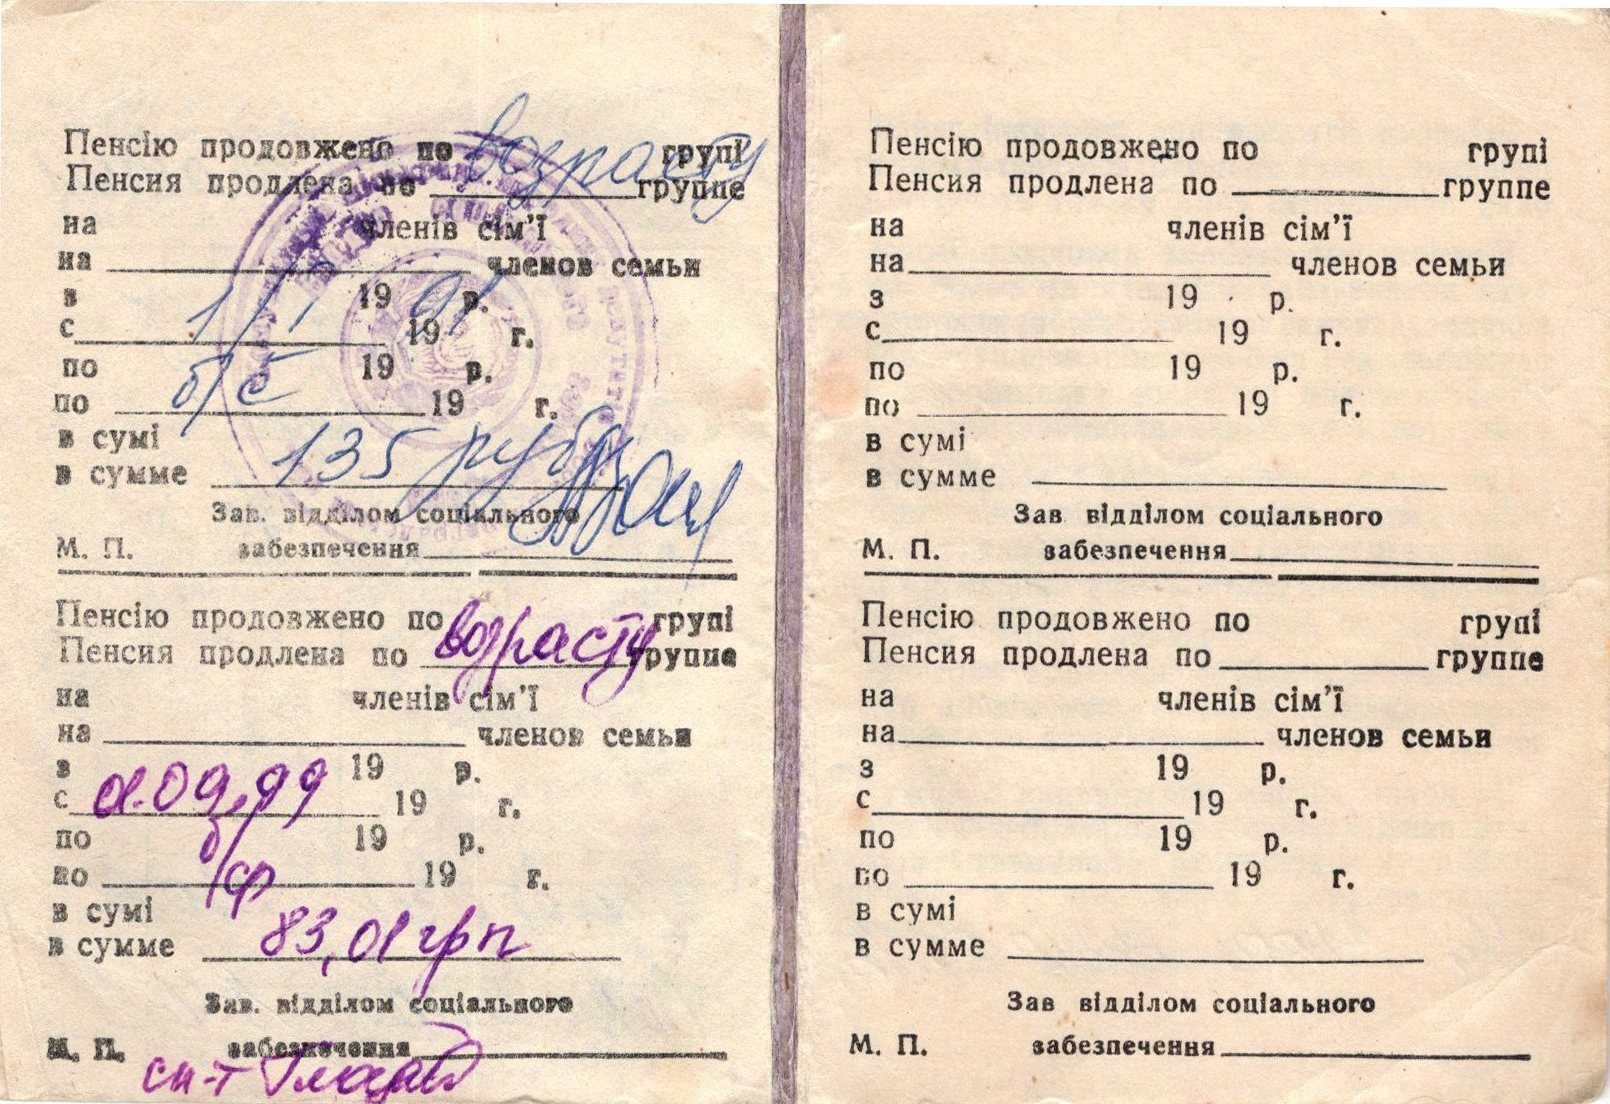 Пенсію продовжено по возрасту групі
Пенсия продлена по группе
на членів сім'ї
на членов семьи
з 1/I 1991 р.
с 19 г.
по б/с 19 р.
по 19 г.
в сумі
в сумме 135 руб
Зав. відділом соціального
М. П. забезпечення
Пенсію продовжено по возрасту групі
Пенсия продлена по группе
на членів сім'ї
на членов семьи
з 19 р.
с 01.09.99 19 г.
по б/ср 19 р.
по 19 г.
в сумі
в сумме 83,01 грн
Зав. відділом соціального
М. П. забезпечення
сп-т
Пенсію продовжено по групі
Пенсия продлена по группе
на членів сім'ї
на членов семьи
з 19 р.
с 19 г.
по 19 р.
по 19 г.
в сумі
в сумме
Зав відділом соціального
М. П. забезпечення
Пенсію продовжено по групі
Пенсия продлена по группе
на членів сім'ї
на членов семьи
з 19 р.
с 19 г.
по 19 р.
по 19 г.
в сумі
в сумме
Зав відділом соціального
М. П. забезпечення